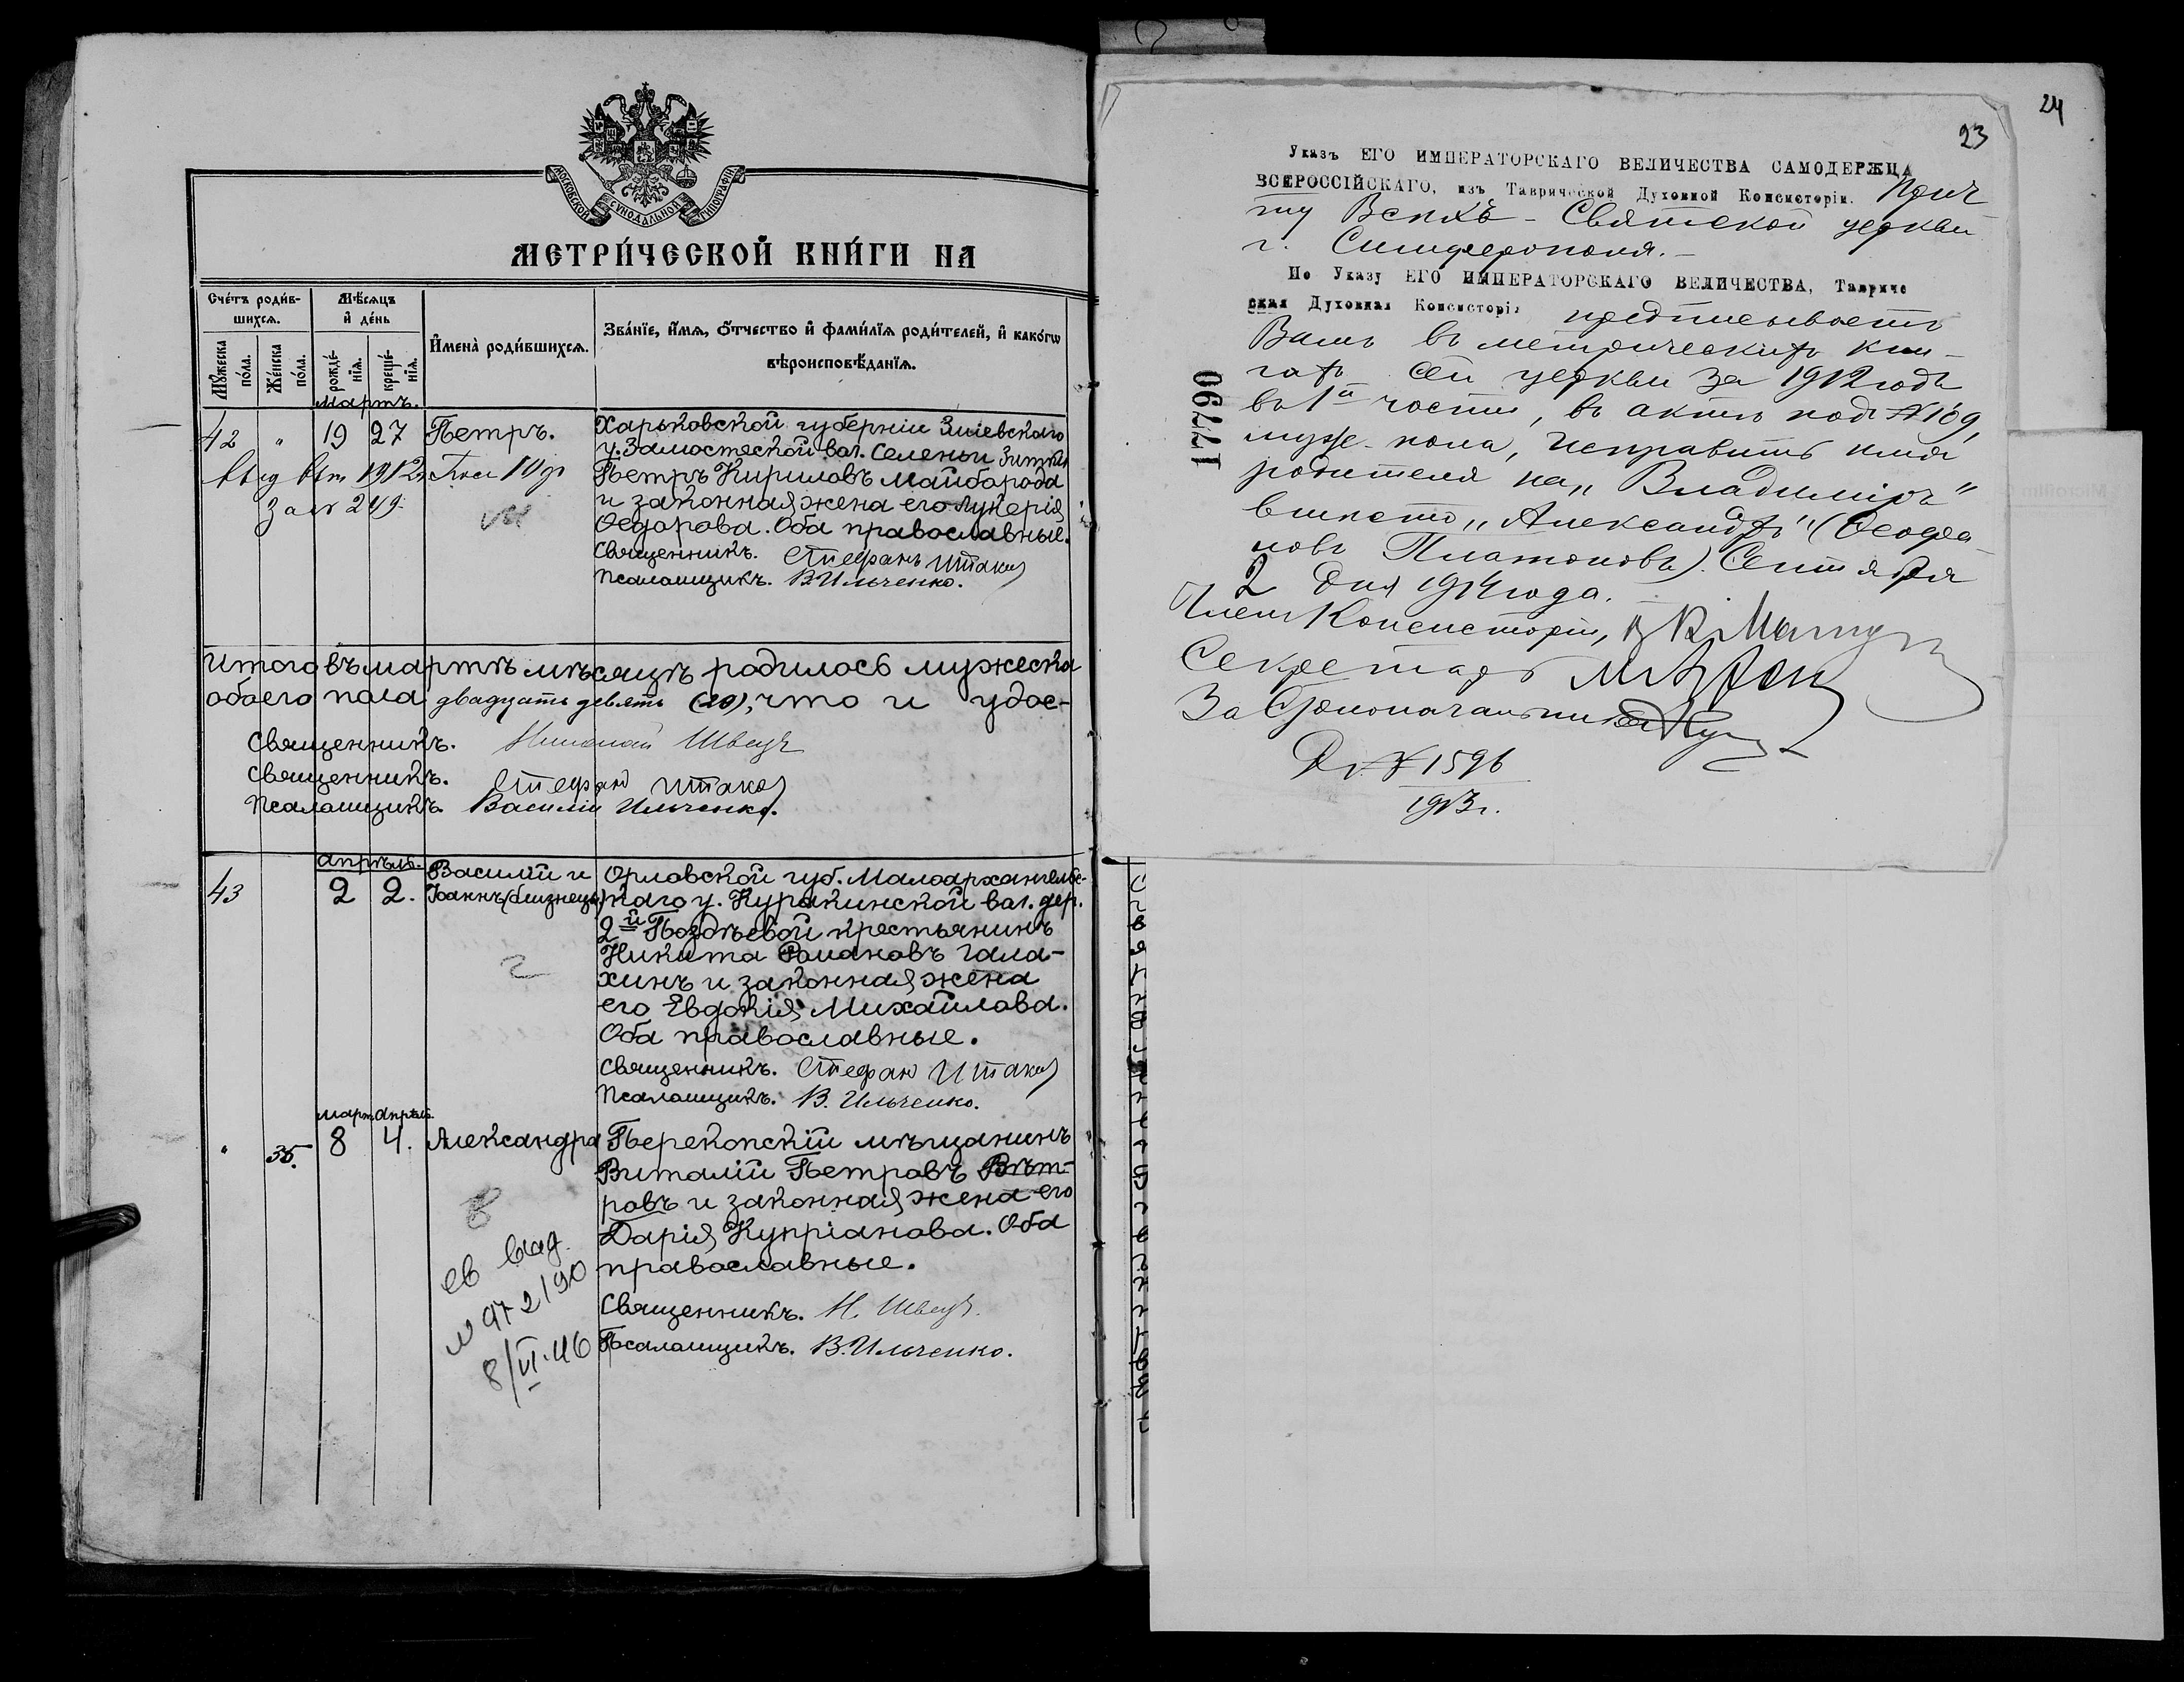 МОСКОВСКОЙ СУНОДАЛЬНОЙ ТИПОГРАФІИ
МЕТРИ́ЧЕСКОЙ КНИ́ГИ НА
Сче́тъ роди́в-
шихсѧ.
Мѣ́сѧцъ
и҆ де́нь
И҆мена̀ роди́вшихсѧ.
Зва́нїе, и҆́мѧ, ѻ҆́тчество и҆ фами́лїѧ роди́телей, и҆ како́гѡ
вѣроисповѣ́данїѧ.
Мꙋ́жеска
по́ла.
Же́нска
по́ла.
рожде́-
нїѧ.
креще́-
нїѧ.
Мартъ.
42 " 19 27 Петръ.
Харьковской губерніи Зміевскаго
у. Замостеской вол. селенья
Петръ Кириловъ Майборода
и законная жена его Лукерія
Ѳедорова. Оба православные.
Священникъ. Стефанъ
Псаломщикъ. В. Ильченко.
1912
249
Итого въ мартѣ мѣсяцѣ родилось мужеска
обоего пола двадцать девять (29), что и удос-
Священникъ. Николай Швецъ
Священникъ. Стефан
Псаломщикъ. Василій Ильченко.
Апрѣль.
43 2 2. Василій и
Іоаннъ (близнецы)
Орловской губ. Малоархангельс-
каго у. Куракинской вол. дер.
2й Поздѣевой крестьянинъ
Никита Романовъ Гала-
хинъ и законная жена
его Евдокія Михайлова.
Оба православные.
Священникъ. Стефан
Псаломщикъ. В. Ильченко.
2
Март. Апрѣль.
" 35. 8 4. Александра
Перекопскій мѣщанинъ
Виталій Петровъ Вѣт-
ровъ и законная жена его
Дарія Купріанова. Оба
православные.
Священникъ. Н. Швецъ.
Псаломщикъ. В. Ильченко.
в
св выд.
8/VI-46
24
23
Указъ ЕГО ИМПЕРАТОРСКАГО ВЕЛИЧЕСТВА САМОДЕРЖЦА
ВСЕРОССІЙСКАГО, изъ Таврической Духовной Консисторіи. Прич
ту Всѣхъ-Святской церкви
г. Симферополя.-
По Указу ЕГО ИМПЕРАТОРСКАГО ВЕЛИЧЕСТВА, Тавриче
ская Духовная Консисторія предписываетъ
Вамъ въ метрическихъ кни-
гахъ сей церкви за 1912 годъ
въ 1й части, въ актѣ подъ № 109,
муж. пола, исправить имя
родителя на „Владиміръ"
вмѣсто „Александръ" (Ѳеофа-
новъ Платоновъ). Сентября
2 дня 1914 года.
Членъ Консисторіи,
Секретарь
За Столоначальника
Д. № 1596
1913 г.
17790